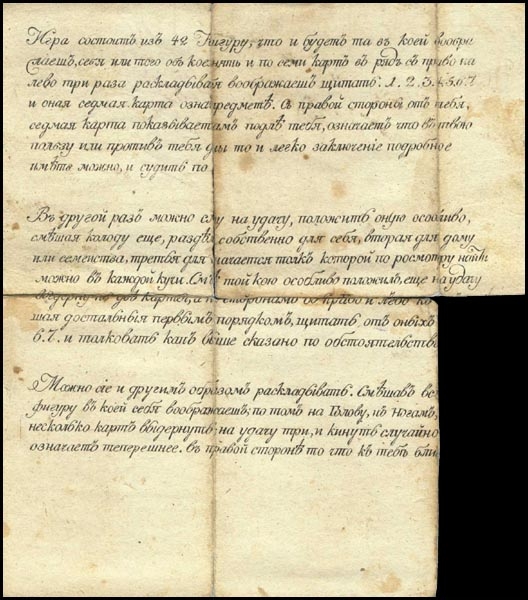 Игра состоитъ изъ 42 Фигуру, что и будетъ та въ коей вообра
жаешъ, себя или того объ коемъ и по семи картъ въ рядъ съ право на
лево три раза раскладывая воображаешъ щитать: 1. 2. 3. 4. 5. 6. 7.
и оная седмая карта означ предметъ. Съ правой стороны отъ тебя,
седмая карта показывает подле тебя, означаетъ что въ твою
пользу или противъ тебя то и легко заключенiе подробное
иметь можно, и судить по
Въ другой разъ можно на удачу, положить оную особливо,
смешая колоду еще, собственно для себя, вторая для дому
или семейства, третья для которой по росмотру
можно въ каждой кучи. той кою особливо положилъ, еще на удачу
выдерну по две карты, сторонамъ въ право и лево
шая достальныя первымъ порядкомъ, щитать отъ оныхъ
6. 7. и толковать какъ выше сказано по обстоятельств
Можно сiе и другимъ образомъ раскладывать. Смѣшавъ
фигуру въ коей себя воображаешъ; по томъ на Голову, къ ногамъ,
несколько картъ выдернуть на удачу три, и кинуть случайно
означаетъ теперешнее. въ правой стороне то что къ тебе